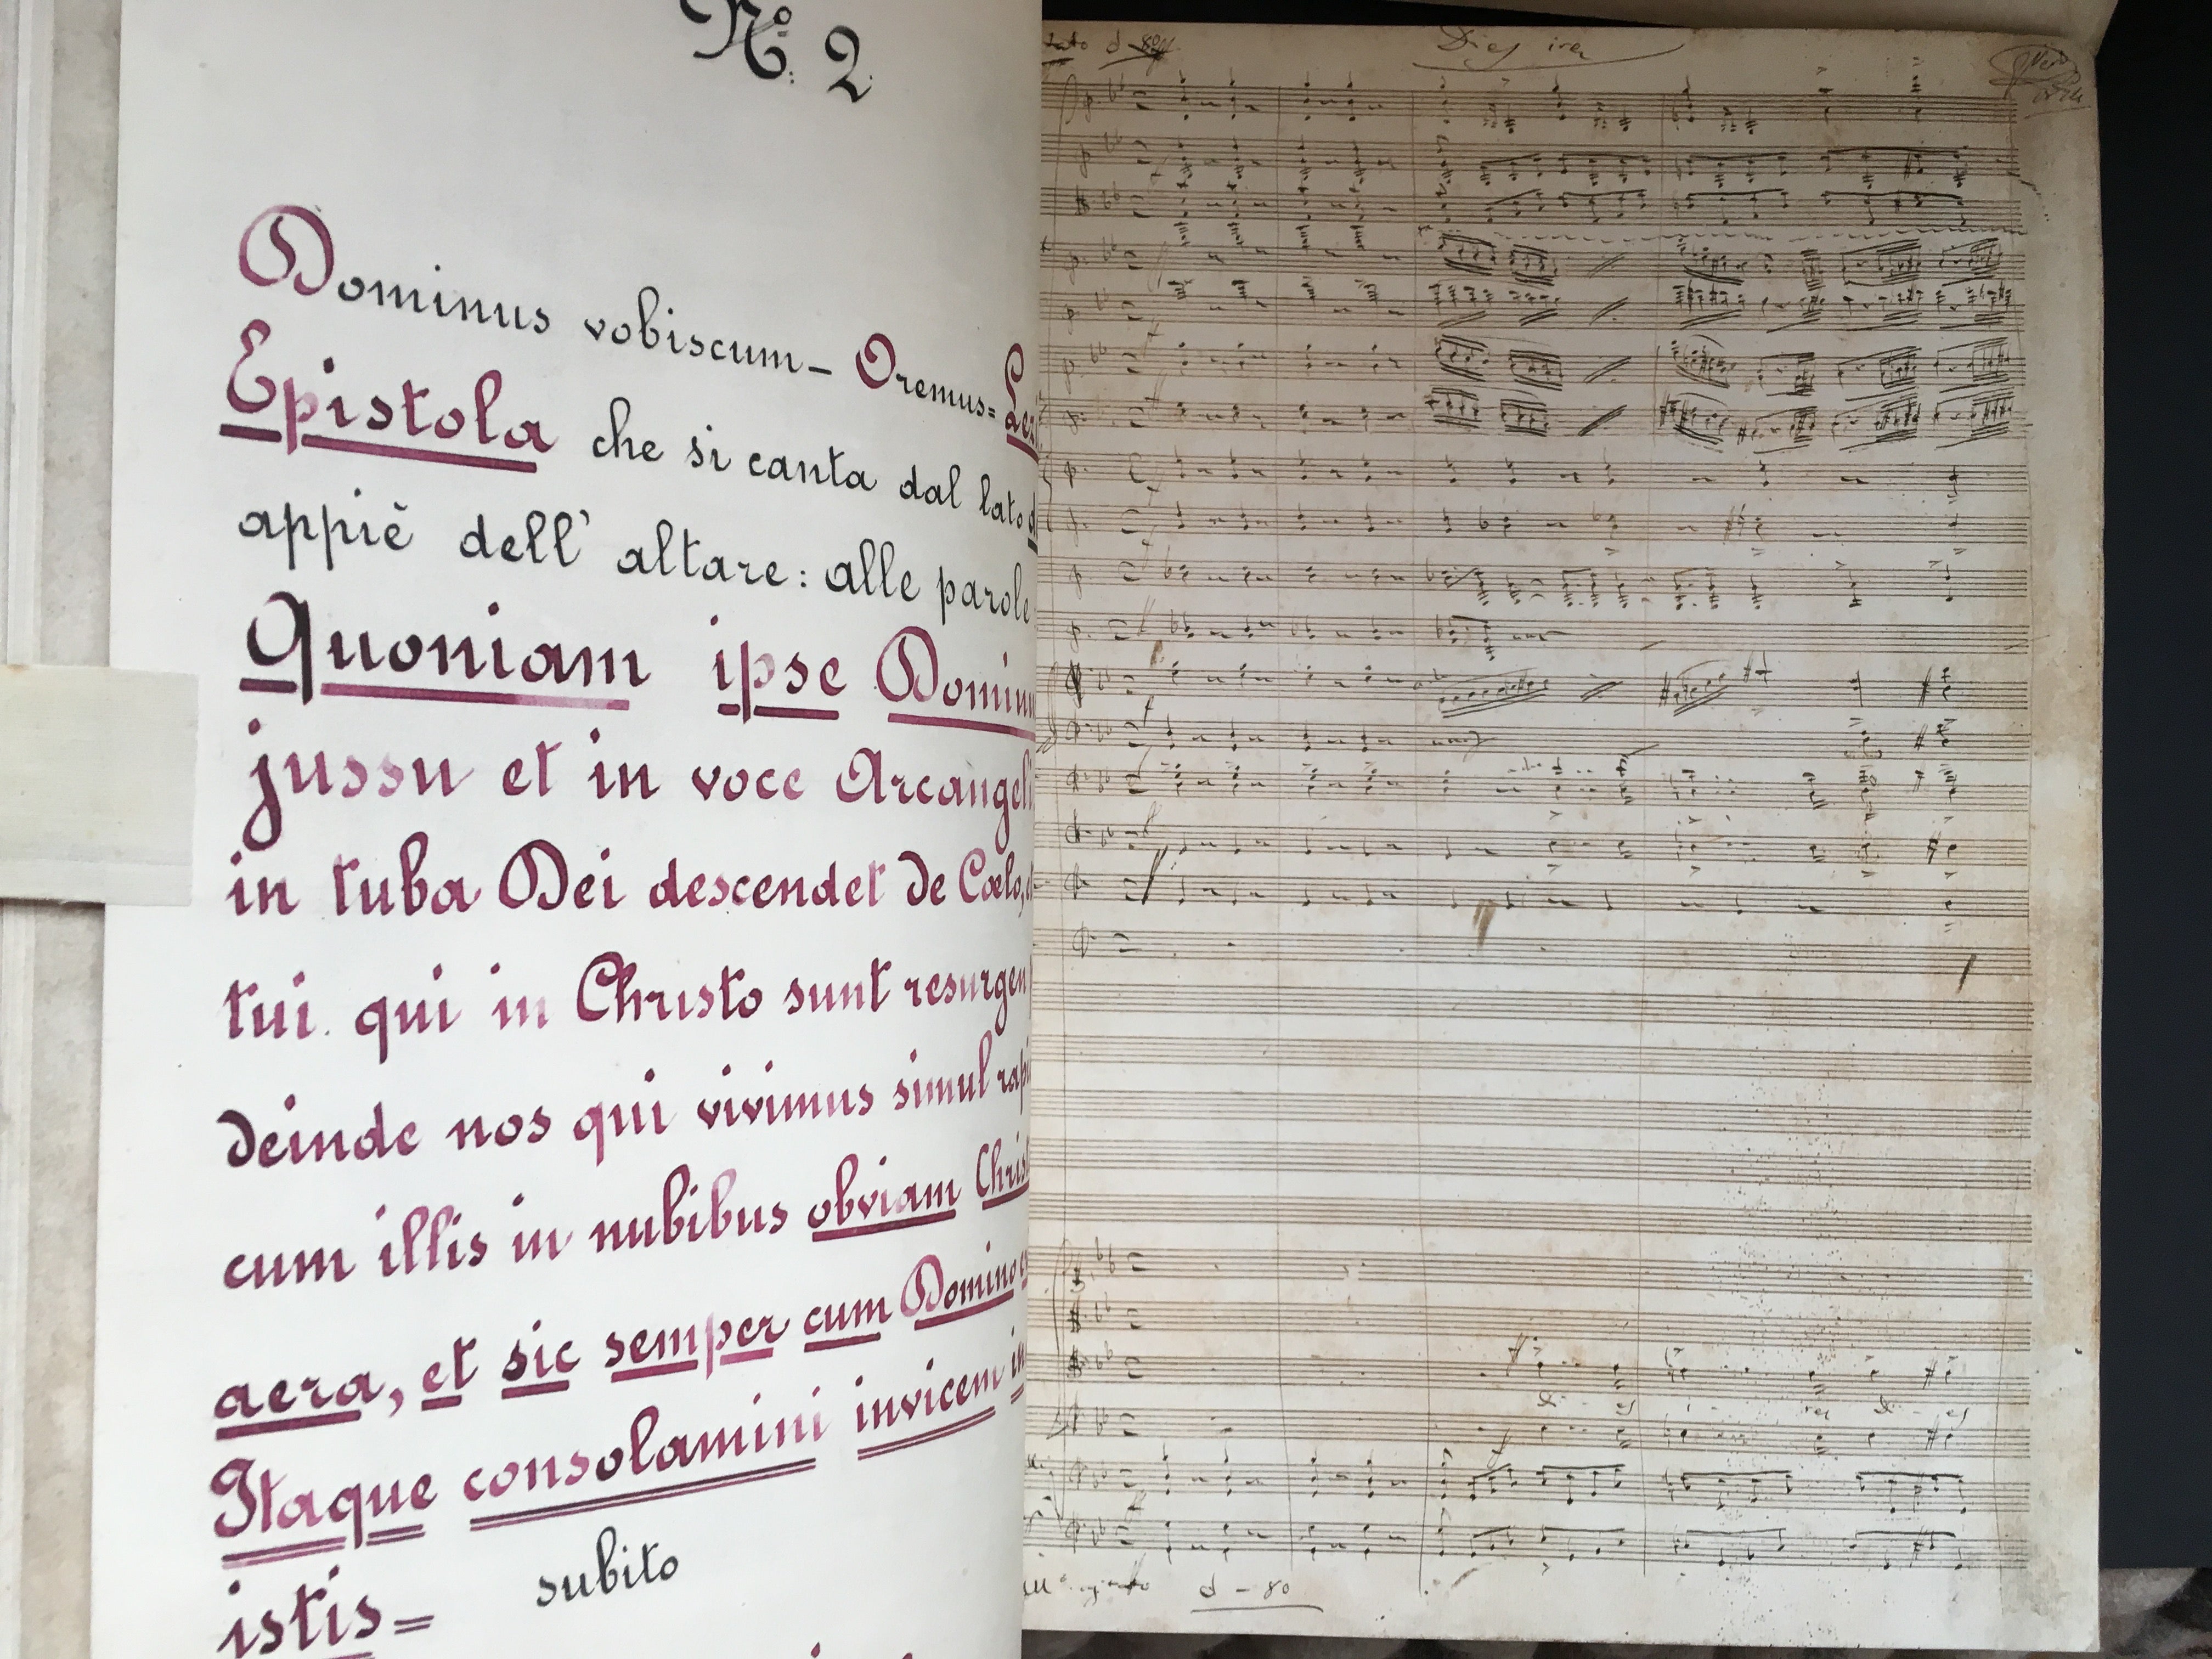 Nº. 2.
Dominus vobiscum – Oremus =
Epistola che si canta dal lato
appiè dell' altare: alle parole
Quoniam ipse
jussu et in voce
in tuba Dei descendet de Cœlo,
tui. qui in Christo sunt
deinde nos qui vivimus simul
cum illis in nubibus obviam
aera, et sic semper cum Domino
Itaque consolamini invicem
istis = subito
Dies irae
di - es i - rae di - es
d - 80